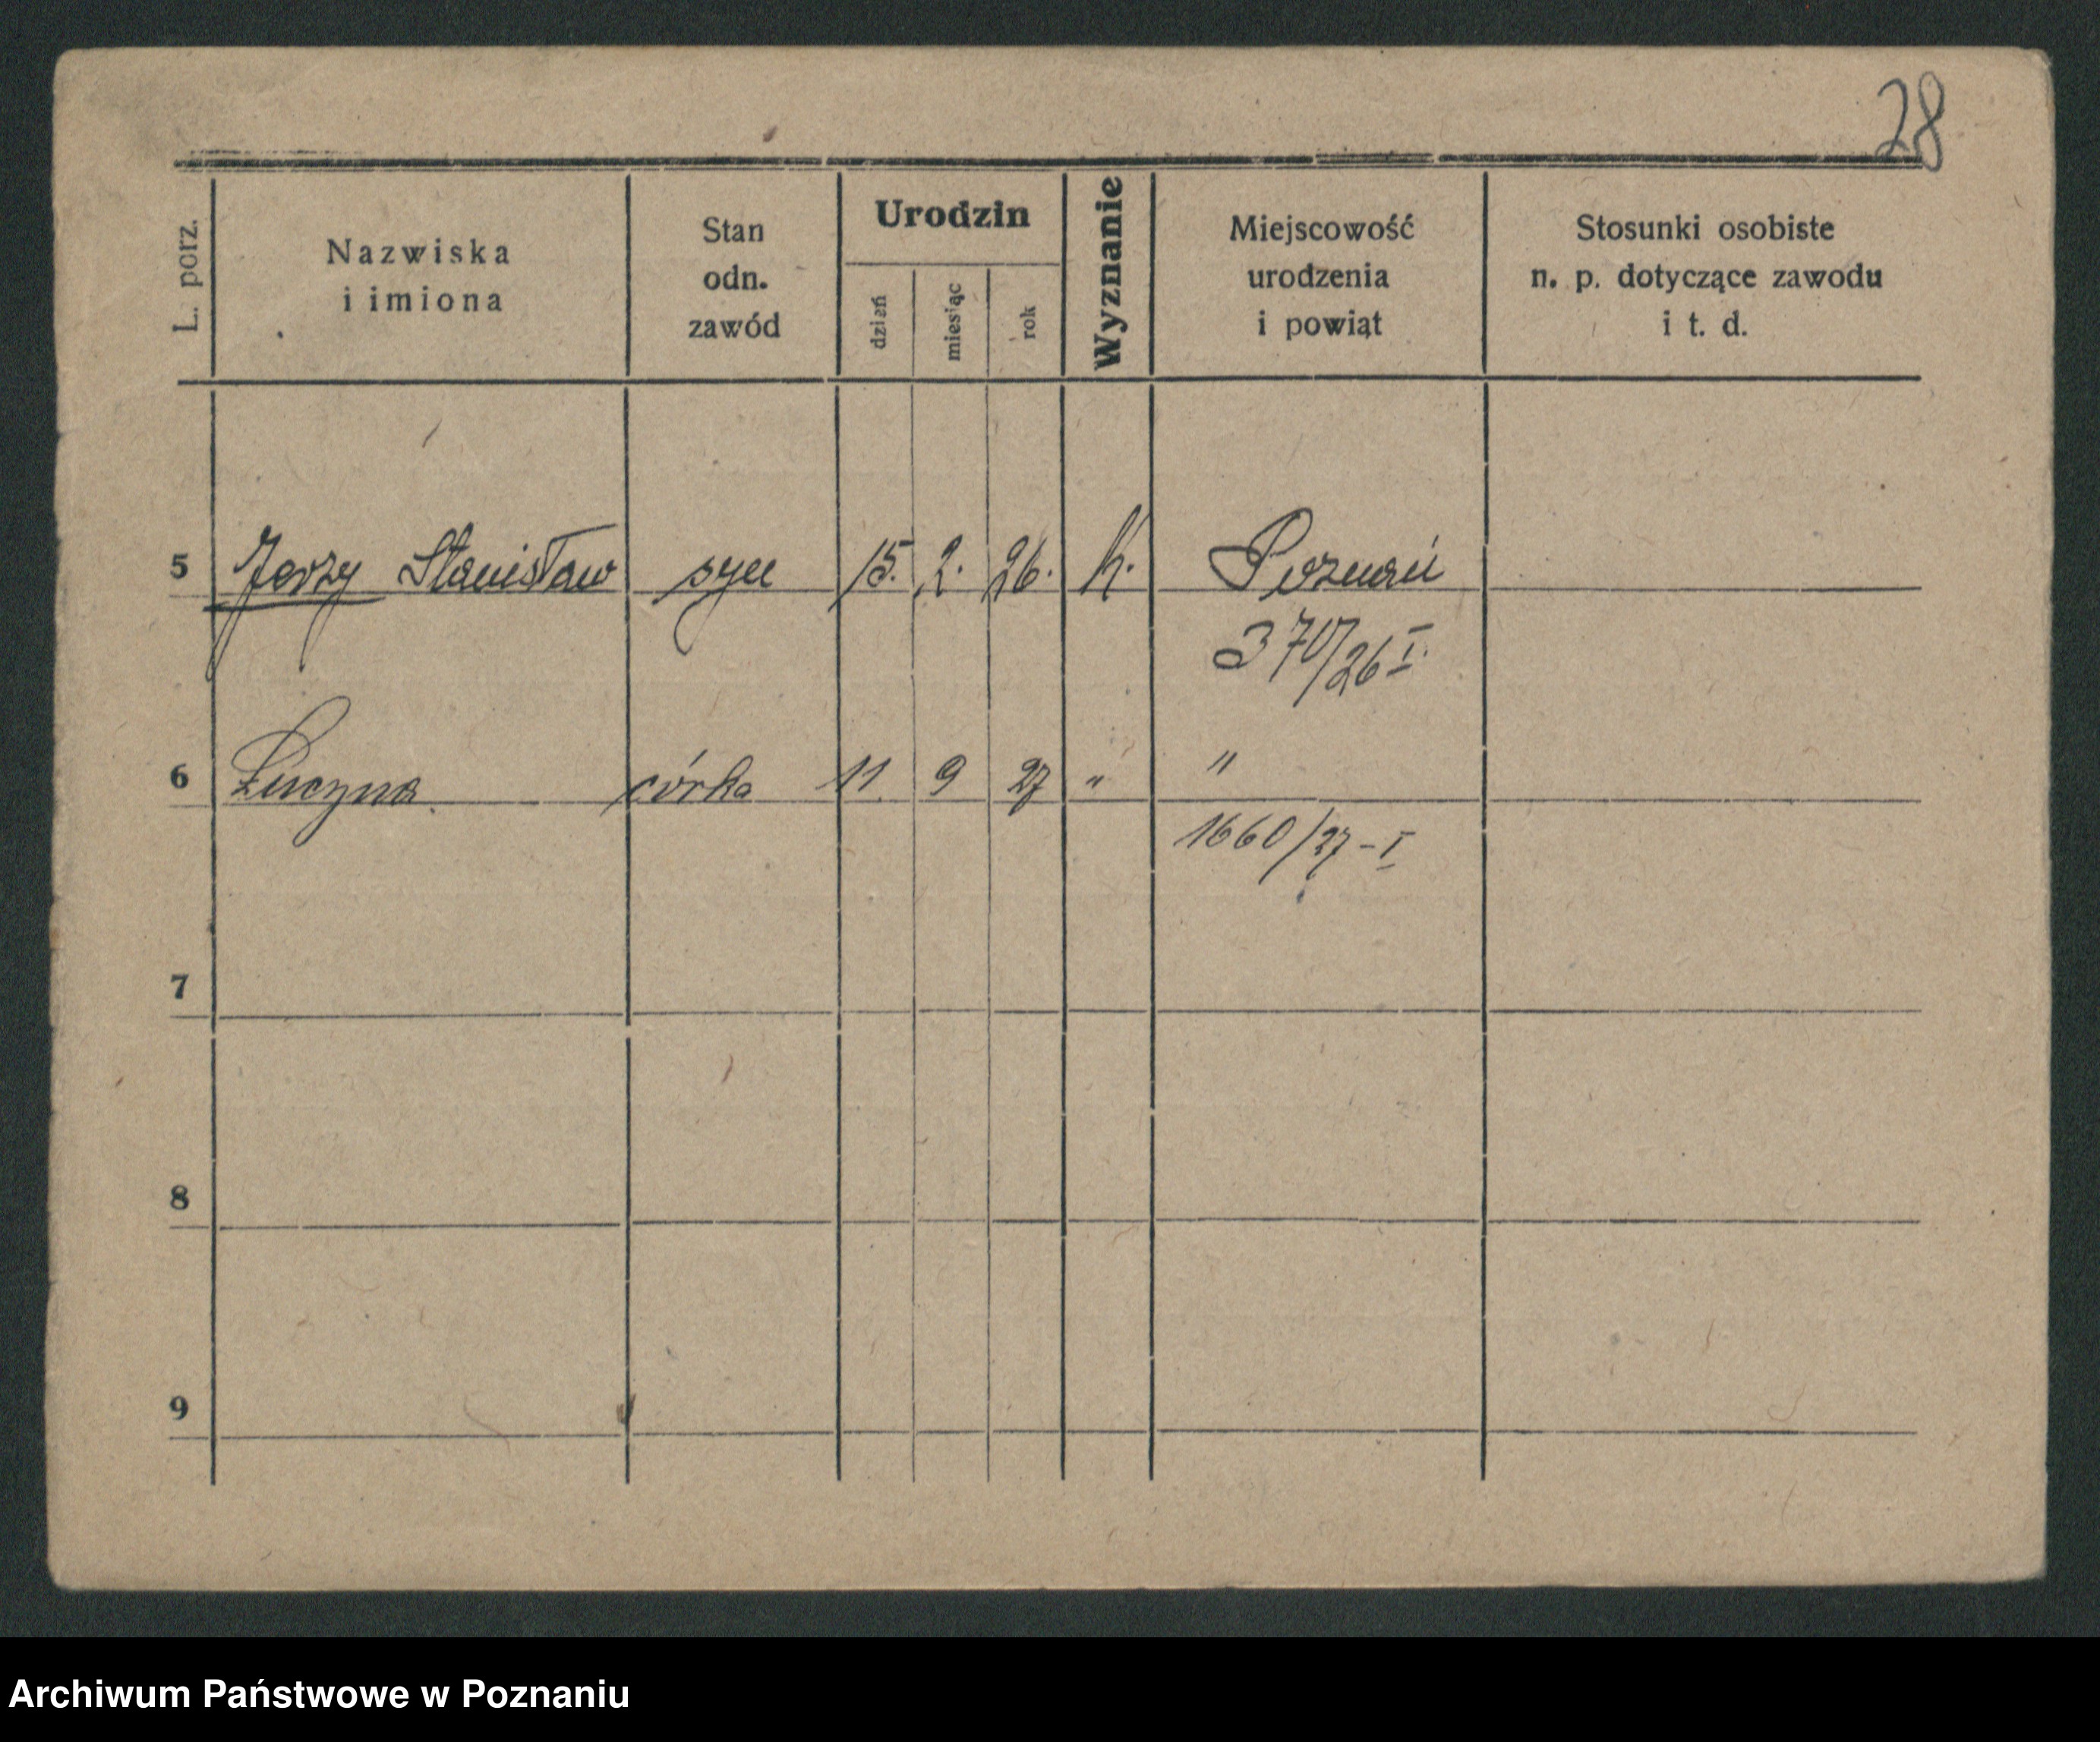 28
L. porz.
Nazwiska
i imiona
Stan
odn.
zawód
Urodzin
dzień
miesiąc
rok
Wyznanie
Miejscowość
urodzenia
i powiąt
Stosunki osobiste
n. p. dotyczące zawodu
i t. d.
5 Jerzy Stanisław syn 15. 2. 26. k. Poznań
370/26 I.
6 Łucyna córka 11. 9 27 " "
1660/27 - I
7
8
9
Archiwum Państwowe w Poznaniu